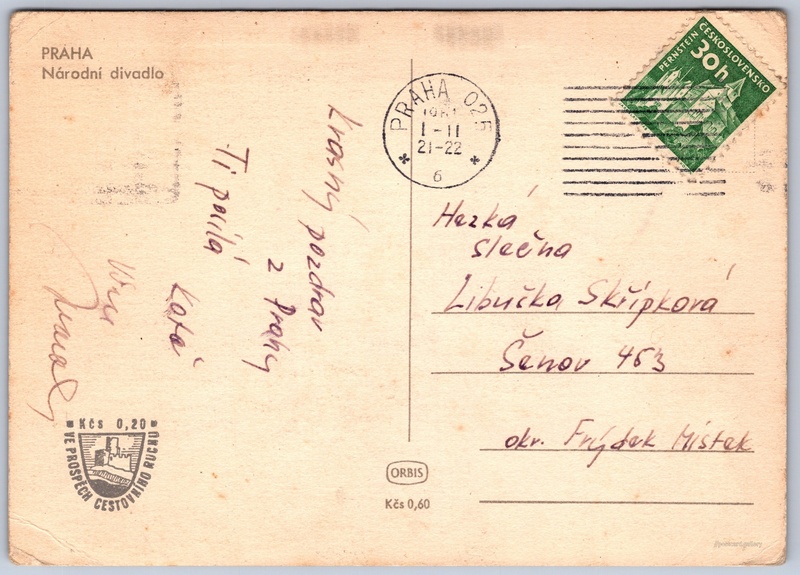 PRAHA
Národní divadlo
Krásný pozdrav
z Prahy
Ti posílá
Kč​s 0,20
VE PROSPĚCH CESTOVNÍHO RUCHU
PRAHA 025
1961
1-11
21-22
6
ČESKOSLOVENSKO
PERNŠTEJN
30h
Hezká
slečna
Libučka Skřípková
Šenov 463
okr. Frýdek Místek
ORBIS
Kčs 0,60